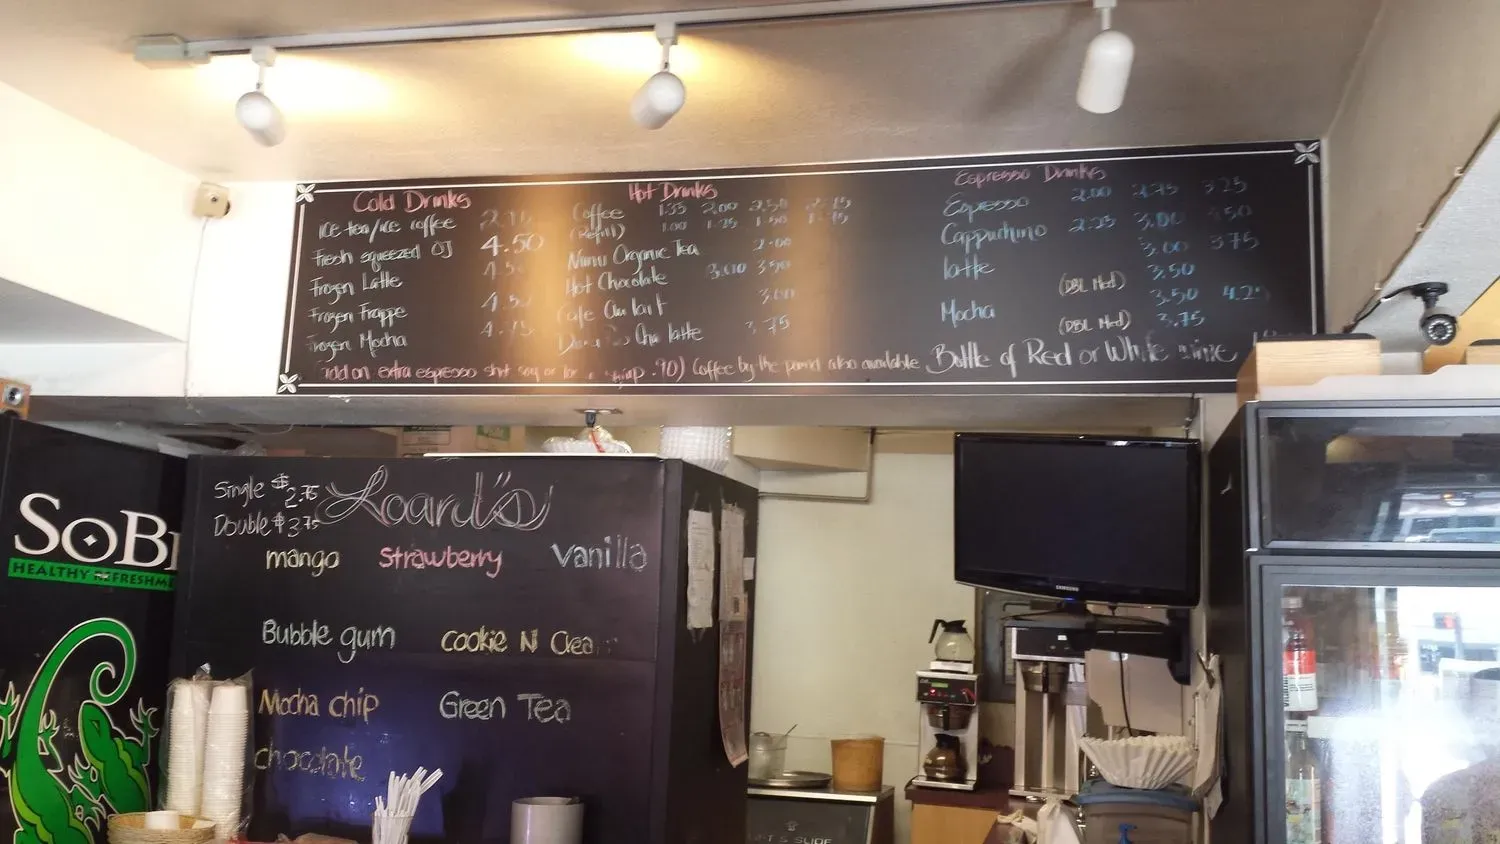 Cold Drinks
Ice tea/ice coffee
Fresh squeezed OJ 4.50
Frozen Latte 4.50
Frozen Frappe 4.50
Frozen Mocha 4.75
Hot Drinks
Coffee 2.00 2.50
(Refill) 1.00 1.25 1.50
Numi Organic Tea 2.00
Hot Chocolate 3.00 3.50
Cafe Au lait 3.00
Chai latte 3.75
Espresso Drinks
Espresso 2.00 2.75 3.25
Cappuchino 2.25 3.00 3.50
latte 3.00 3.75
(DBL Med) 3.50
Mocha 3.50 4.25
(DBL Med) 3.75
add on extra espresso shot soy or .90) Coffee by the pound also available Bottle of Red or White wine
Single $2.75
Double $3.75
Loard's
mango strawberry vanilla
Bubble gum cookie N Crea
Mocha chip Green Tea
chocolate
SoB
HEALTHY REFRESHM
SAMSUNG